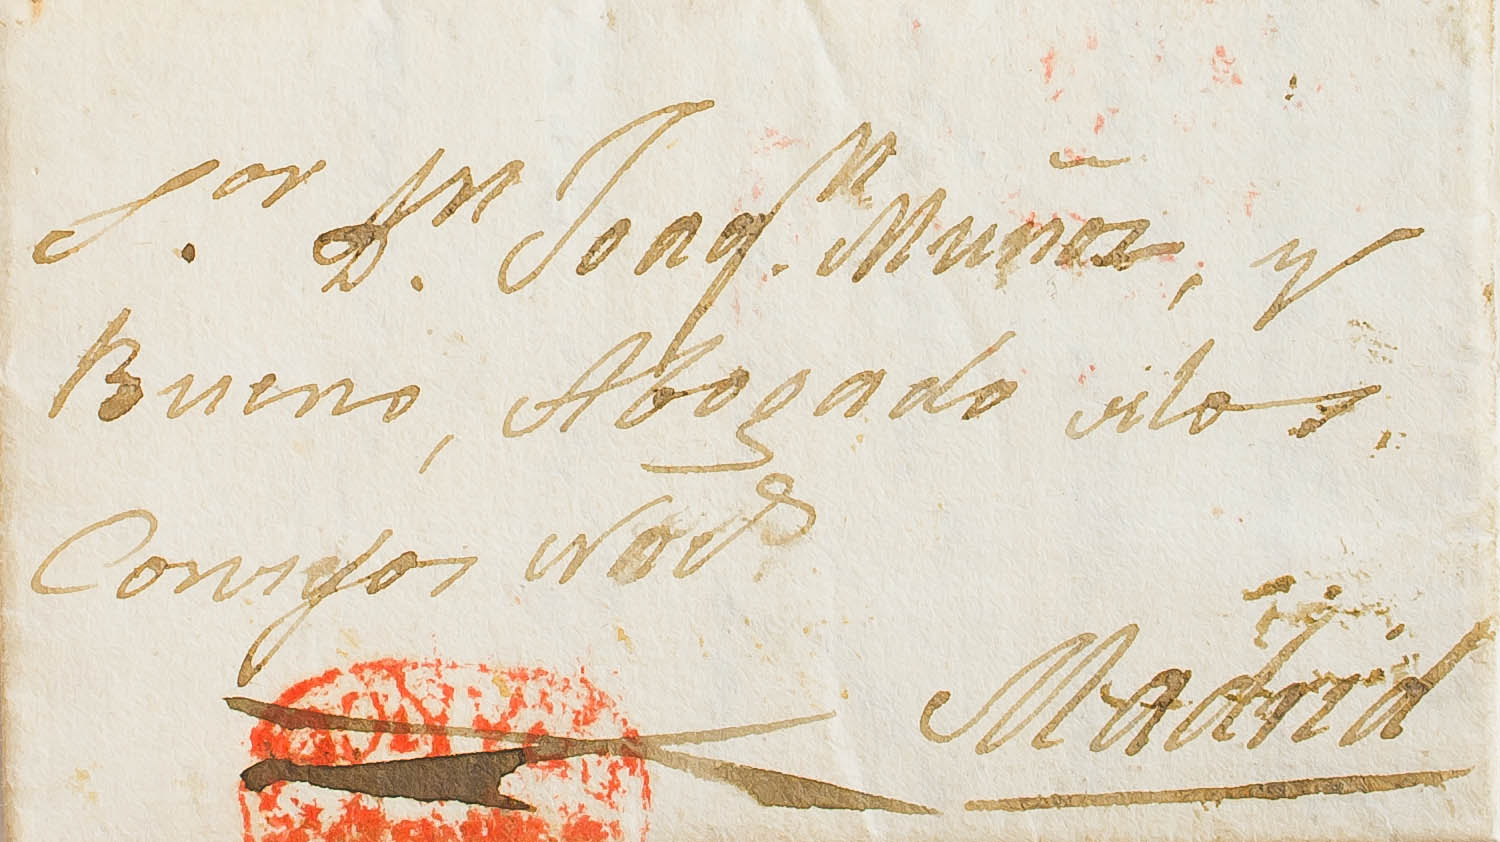 S.or D.n Joaq.n Muñoz, y
Bueno, Abogado de los
Consejos Nac.s
Madrid